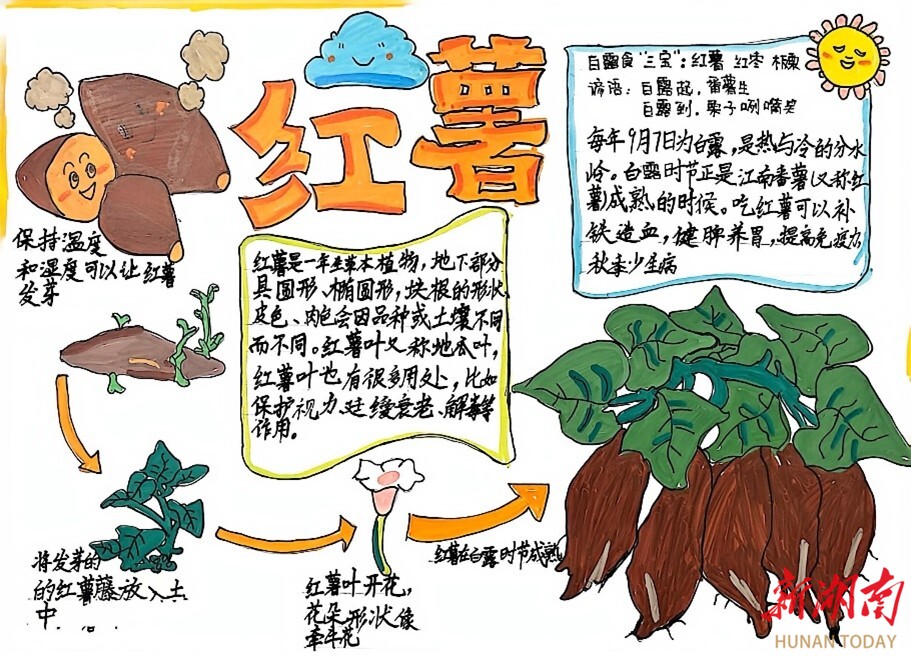 红薯
白露食“三宝”：红薯 红枣
谚语：白露起，番薯生
白露到，栗子咧嘴笑
每年9月7日为白露，是热与冷的分水
岭。白露时节正是江南番薯（又称红
薯）成熟的时候。吃红薯可以补
铁造血，健脾养胃，提高免疫力，
秋季少生病
保持温度
和湿度可以让红薯
发芽
红薯是一年生草本植物，地下部分
具圆形、椭圆形，块根的形状、
皮色、肉色会因品种或土壤不同
而不同。红薯叶又称地瓜叶，
红薯叶也有很多用处，比如
保护视力、延缓衰老、解毒等
作用。
将发芽的
的红薯藤放入土
中
红薯叶开花，
花朵形状像
牵牛花
红薯在白露时节成熟
新湖南
HUNAN TODAY